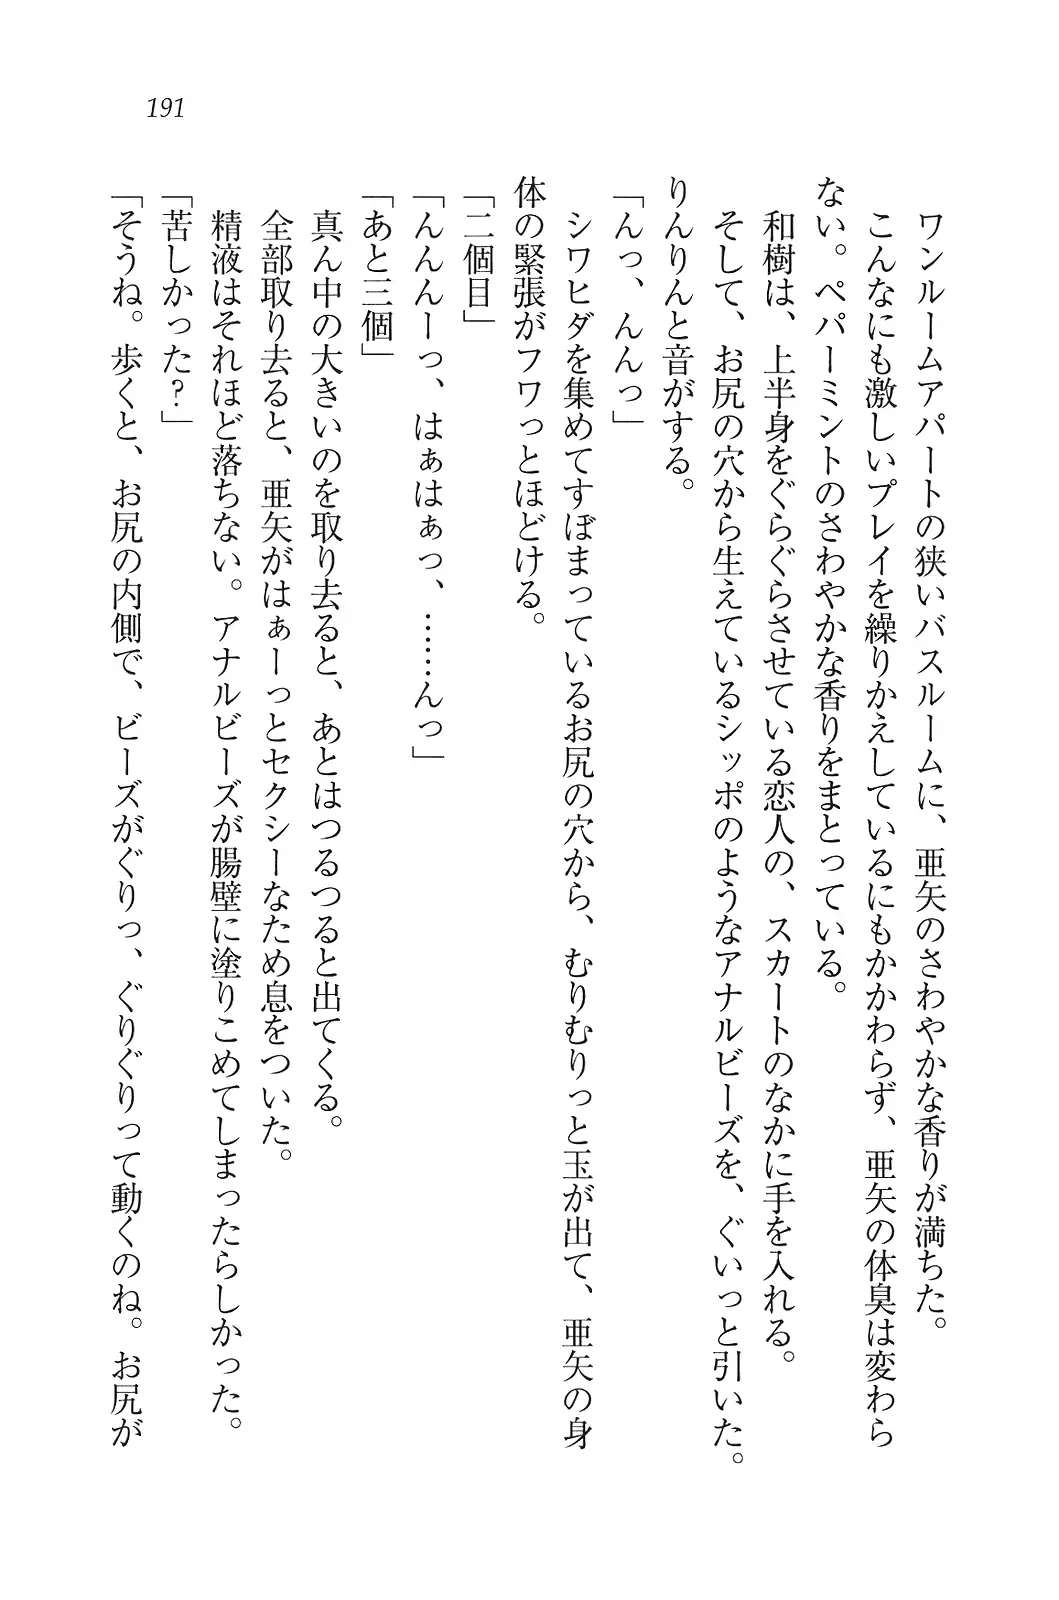 191
ワンルームアパートの狭いバスルームに、亜矢のさわやかな香りが満ちた。
こんなにも激しいプレイを繰りかえしているにもかかわらず、亜矢の体臭は変わら
ない。ペパーミントのさわやかな香りをまとっている。
和樹は、上半身をぐらぐらさせている恋人の、スカートのなかに手を入れる。
そして、お尻の穴から生えているシッポのようなアナルビーズを、ぐいっと引いた。
りんりんと音がする。
「んっ、んんっ」
シワヒダを集めてすぼまっているお尻の穴から、むりむりっと玉が出て、亜矢の身
体の緊張がフワっとほどける。
「二個目」
「んんんーっ、はぁはぁっ、……んっ」
「あと三個」
真ん中の大きいのを取り去ると、あとはつるつると出てくる。
全部取り去ると、亜矢がはぁーっとセクシーなため息をついた。
精液はそれほど落ちない。アナルビーズが腸壁に塗りこめてしまったらしかった。
「苦しかった?」
「そうね。歩くと、お尻の内側で、ビーズがぐりっ、ぐりぐりって動くのね。お尻が